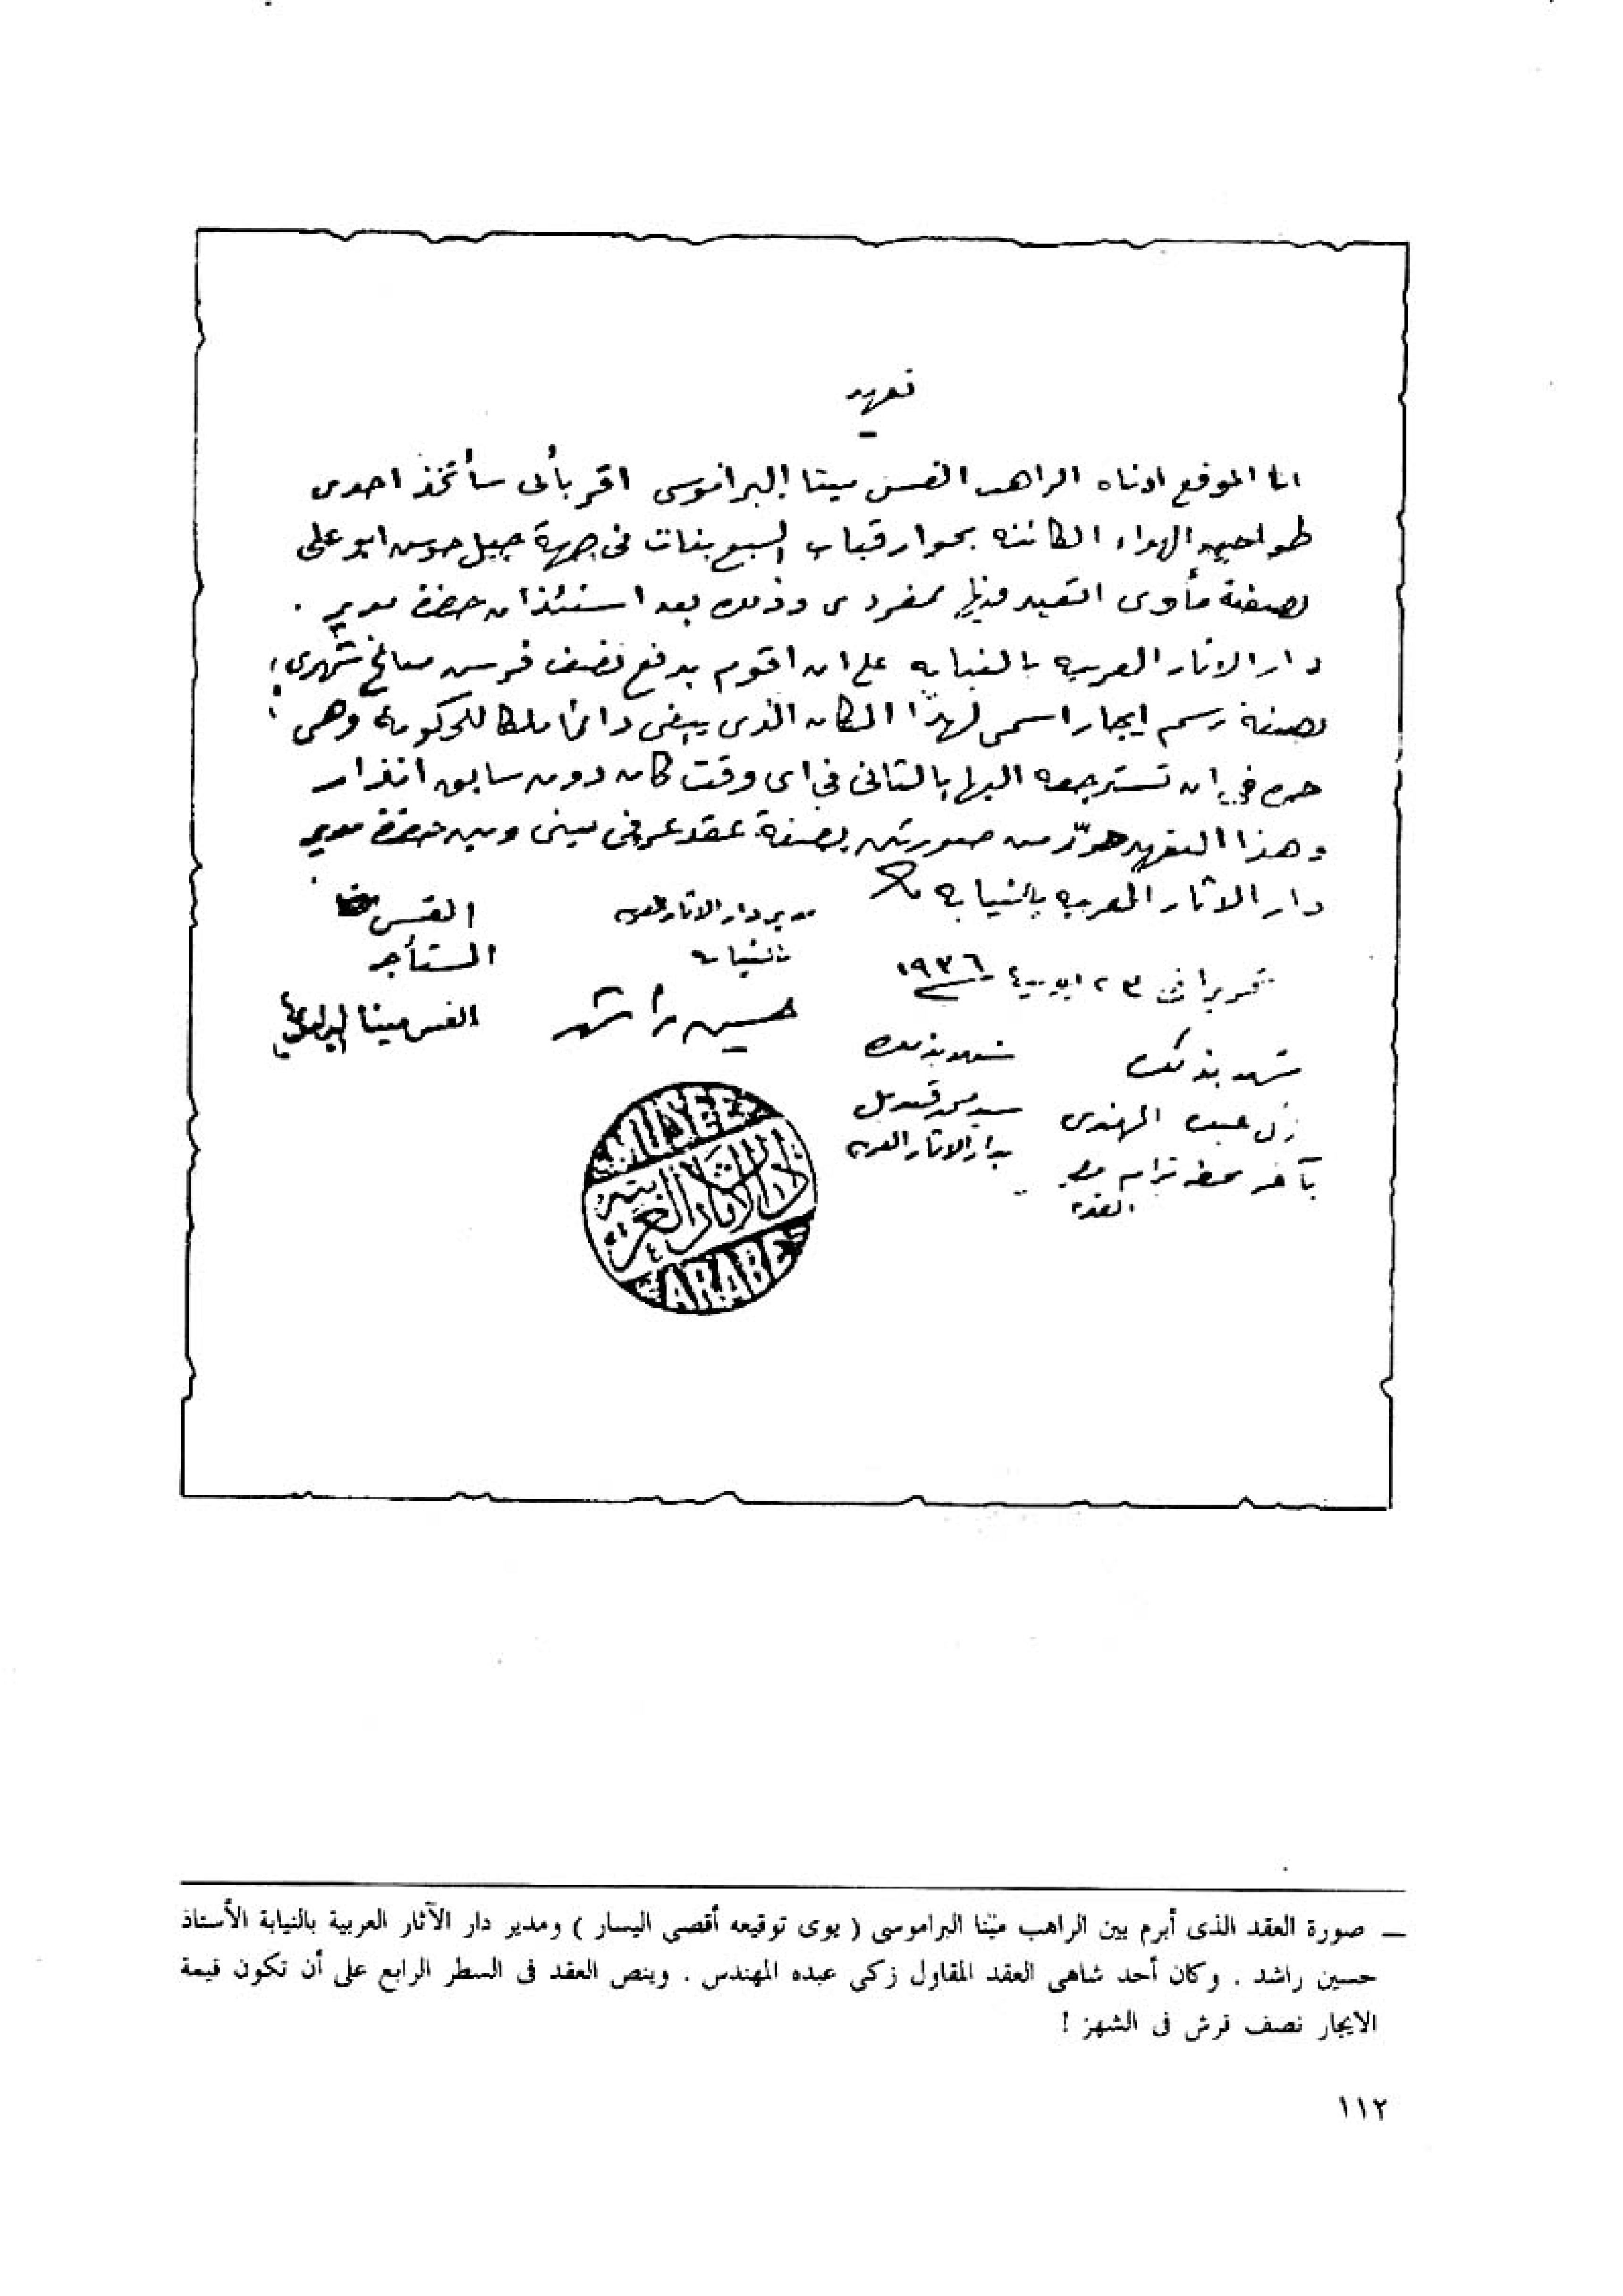 تعهد
انا الموقع ادناه الراهب القس مينا البراموسى اقر بأنى سأتخذ احدى
طواحين الهواء الكائنه بجوار قباب السبع بنات فى جهة جبل حوس ابو على
بصفته مأوى اتعبد فيها بمفردى وذلك بعد استئذان حضرة مدير .
دار الاثار العربيه بالنيابه على ان اقوم بدفع نصف قرش صاغ شهرى
بصفة رسم ايجار اسمى لهذا المكان الذى يبقى دائما ملكا للحكومة وهى
حره فى ان تسترجعه اليها بالتالى فى اى وقت كان دون سابق انذار
وهذا التعهد حرّر من صورتين بصفة عقد عرفى بينى وبين حضرة مدير
دار الاثار العربيه بالنيابه
تحريرا فى ٢٣ ١٩٣٦
مدير دار الاثار العربيه
بالنيابه
حسين راشد
القس
المستأجر
القس مينا البراموسى
شهد بذلك
المهندى
بآخر محطة ترام مصر
القديمة
شهد بذلك
سيد محمد قنديل
بدار الاثار العربيه
MUSEE
دار الآثار العربية
ARABE
ــ صورة العقد الذى أبرم بين الراهب مينا البراموسى ( يوى توقيعه أقصى اليسار ) ومدير دار الآثار العربية بالنيابة الأستاذ
حسين راشد . وكان أحد شاهى العقد المقاول زكى عبده المهندس . وينص العقد فى السطر الرابع على أن تكون قيمة
الايجار نصف قرش فى الشهز !
١١٢